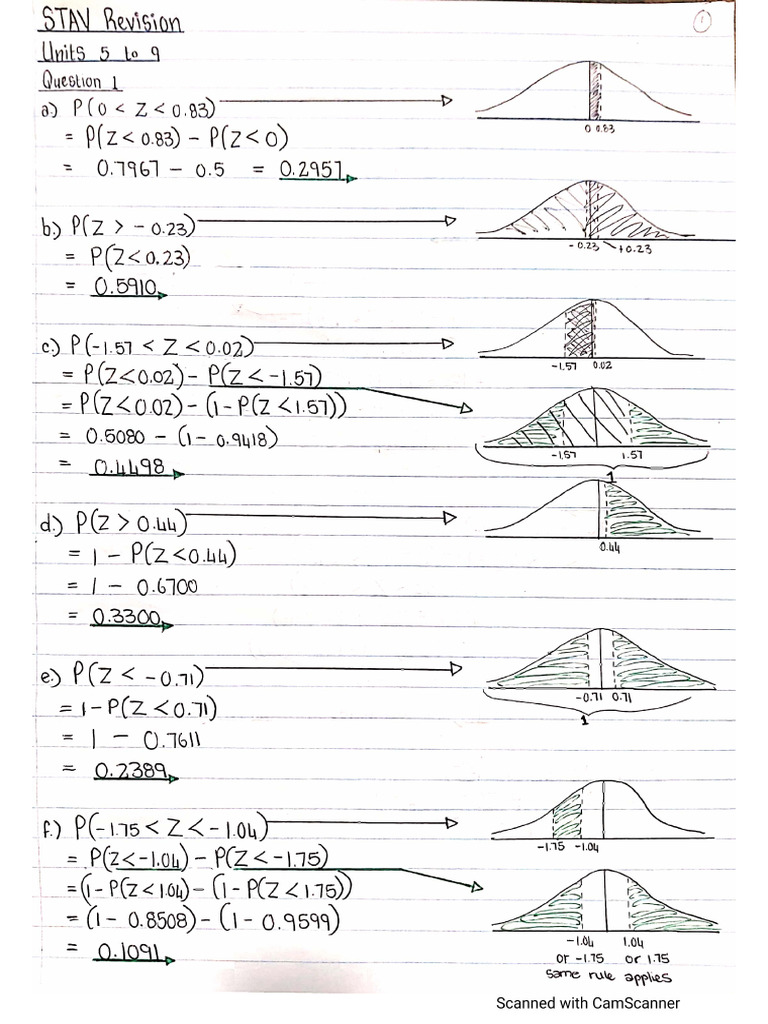 STAV Revision
1
Units 5 to 9
Question 1
a.) P(0 < Z < 0.83)
= P(Z < 0.83) - P(Z < 0)
= 0.7967 - 0.5 = 0.2957
0 0.83
b.) P(Z > - 0.23)
= P(Z < 0.23)
= 0.5910
- 0.23 +0.23
c.) P(-1.57 < Z < 0.02)
= P(Z<0.02) - P(Z < -1.57)
= P(Z < 0.02) - (1 - P(Z < 1.57))
= 0.5080 - (1 - 0.9418)
= 0.4498
-1.57 0.02
-1.57 1.57
1
d.) P(Z > 0.44)
= 1 - P(Z < 0.44)
= 1 - 0.6700
= 0.3300
0.44
e.) P(Z < -0.71)
= 1 - P(Z < 0.71)
= 1 - 0.7611
= 0.2389
-0.71 0.71
1
f.) P(-1.75 < Z < -1.04)
= P(Z < -1.04) - P(Z < -1.75)
= (1 - P(Z < 1.04) - (1 - P(Z < 1.75))
= (1 - 0.8508) - (1 - 0.9599)
= 0.1091
-1.75 -1.04
-1.04 1.04
or -1.75 or 1.75
same rule applies
Scanned with CamScanner